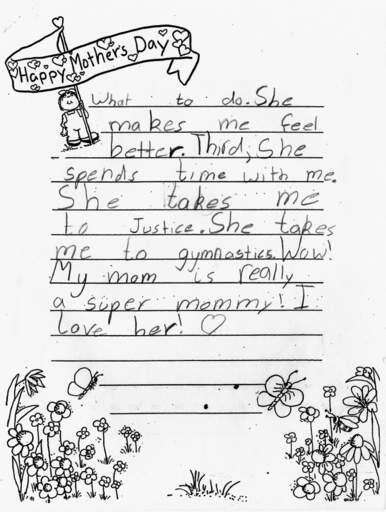 Happy Mother's Day
What to do. She
makes me feel
better. Third, She
spends time with me.
She takes me
to Justice. She takes
me to gymnastics. Wow!
My mom is really
a super mommy! I
love her! ♡